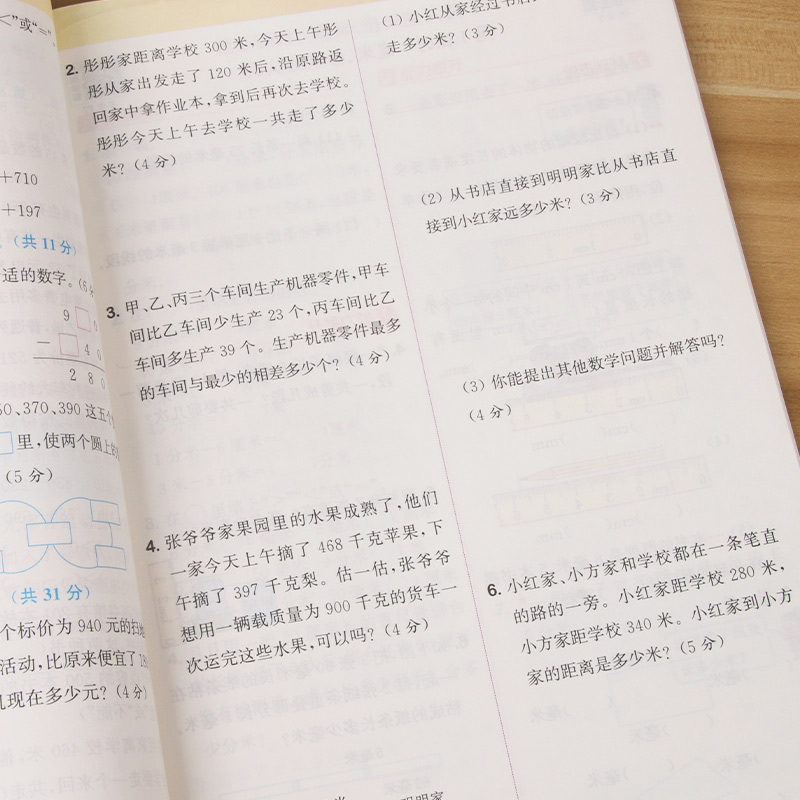 ＜”或“＝”
＋710
＋197
（共 11 分）
适的数字。
9 □ 0
－ □ 4 0
2 8 0
50、370、390 这五个
□里，使两个圆上的
（5 分）
（共 31 分）
个标价为 940 元的扫
活动，比原来便宜了
机现在多少元？（4 分）
2. 彤彤家距离学校 300 米，今天上午彤
彤从家出发走了 120 米后，沿原路返
回家中拿作业本，拿到后再次去学校。
彤彤今天上午去学校一共走了多少
米？（4 分）
3. 甲、乙、丙三个车间生产机器零件，甲车
间比乙车间少生产 23 个，丙车间比乙
车间多生产 39 个。生产机器零件最多
的车间与最少的相差多少个？（4 分）
4. 张爷爷家果园里的水果成熟了，他们
一家今天上午摘了 468 千克苹果，下
午摘了 397 千克梨。估一估，张爷爷
想用一辆载质量为 900 千克的货车一
次运完这些水果，可以吗？（4 分）
（1）小红从家经过书店
走多少米？（3 分）
（2）从书店直接到明明家比从书店直
接到小红家远多少米？（3 分）
（3）你能提出其他数学问题并解答吗？
（4 分）
6. 小红家、小方家和学校都在一条笔直
的路的一旁。小红家距学校 280 米，
小方家距学校 340 米。小红家到小方
家的距离是多少米？（5 分）